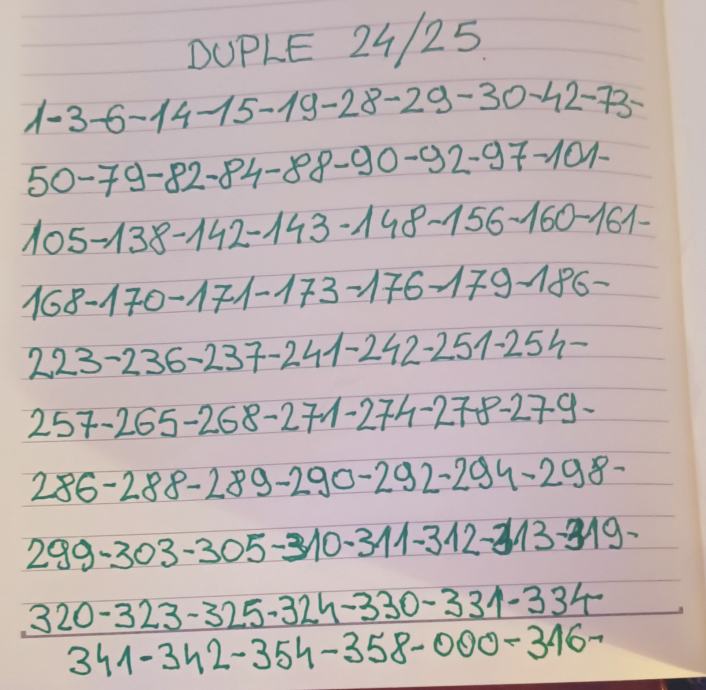 DUPLE 24/25
1-3-6-14-15-19-28-29-30-42-73-
50-79-82-84-88-90-92-97-101-
105-138-142-143-148-156-160-161-
168-170-171-173-176-179-186-
223-236-237-241-242-251-254-
257-265-268-271-274-278-279-
286-288-289-290-292-294-298-
299-303-305-310-311-312-313-319-
320-323-325-324-330-331-334-
341-342-354-358-000-316-